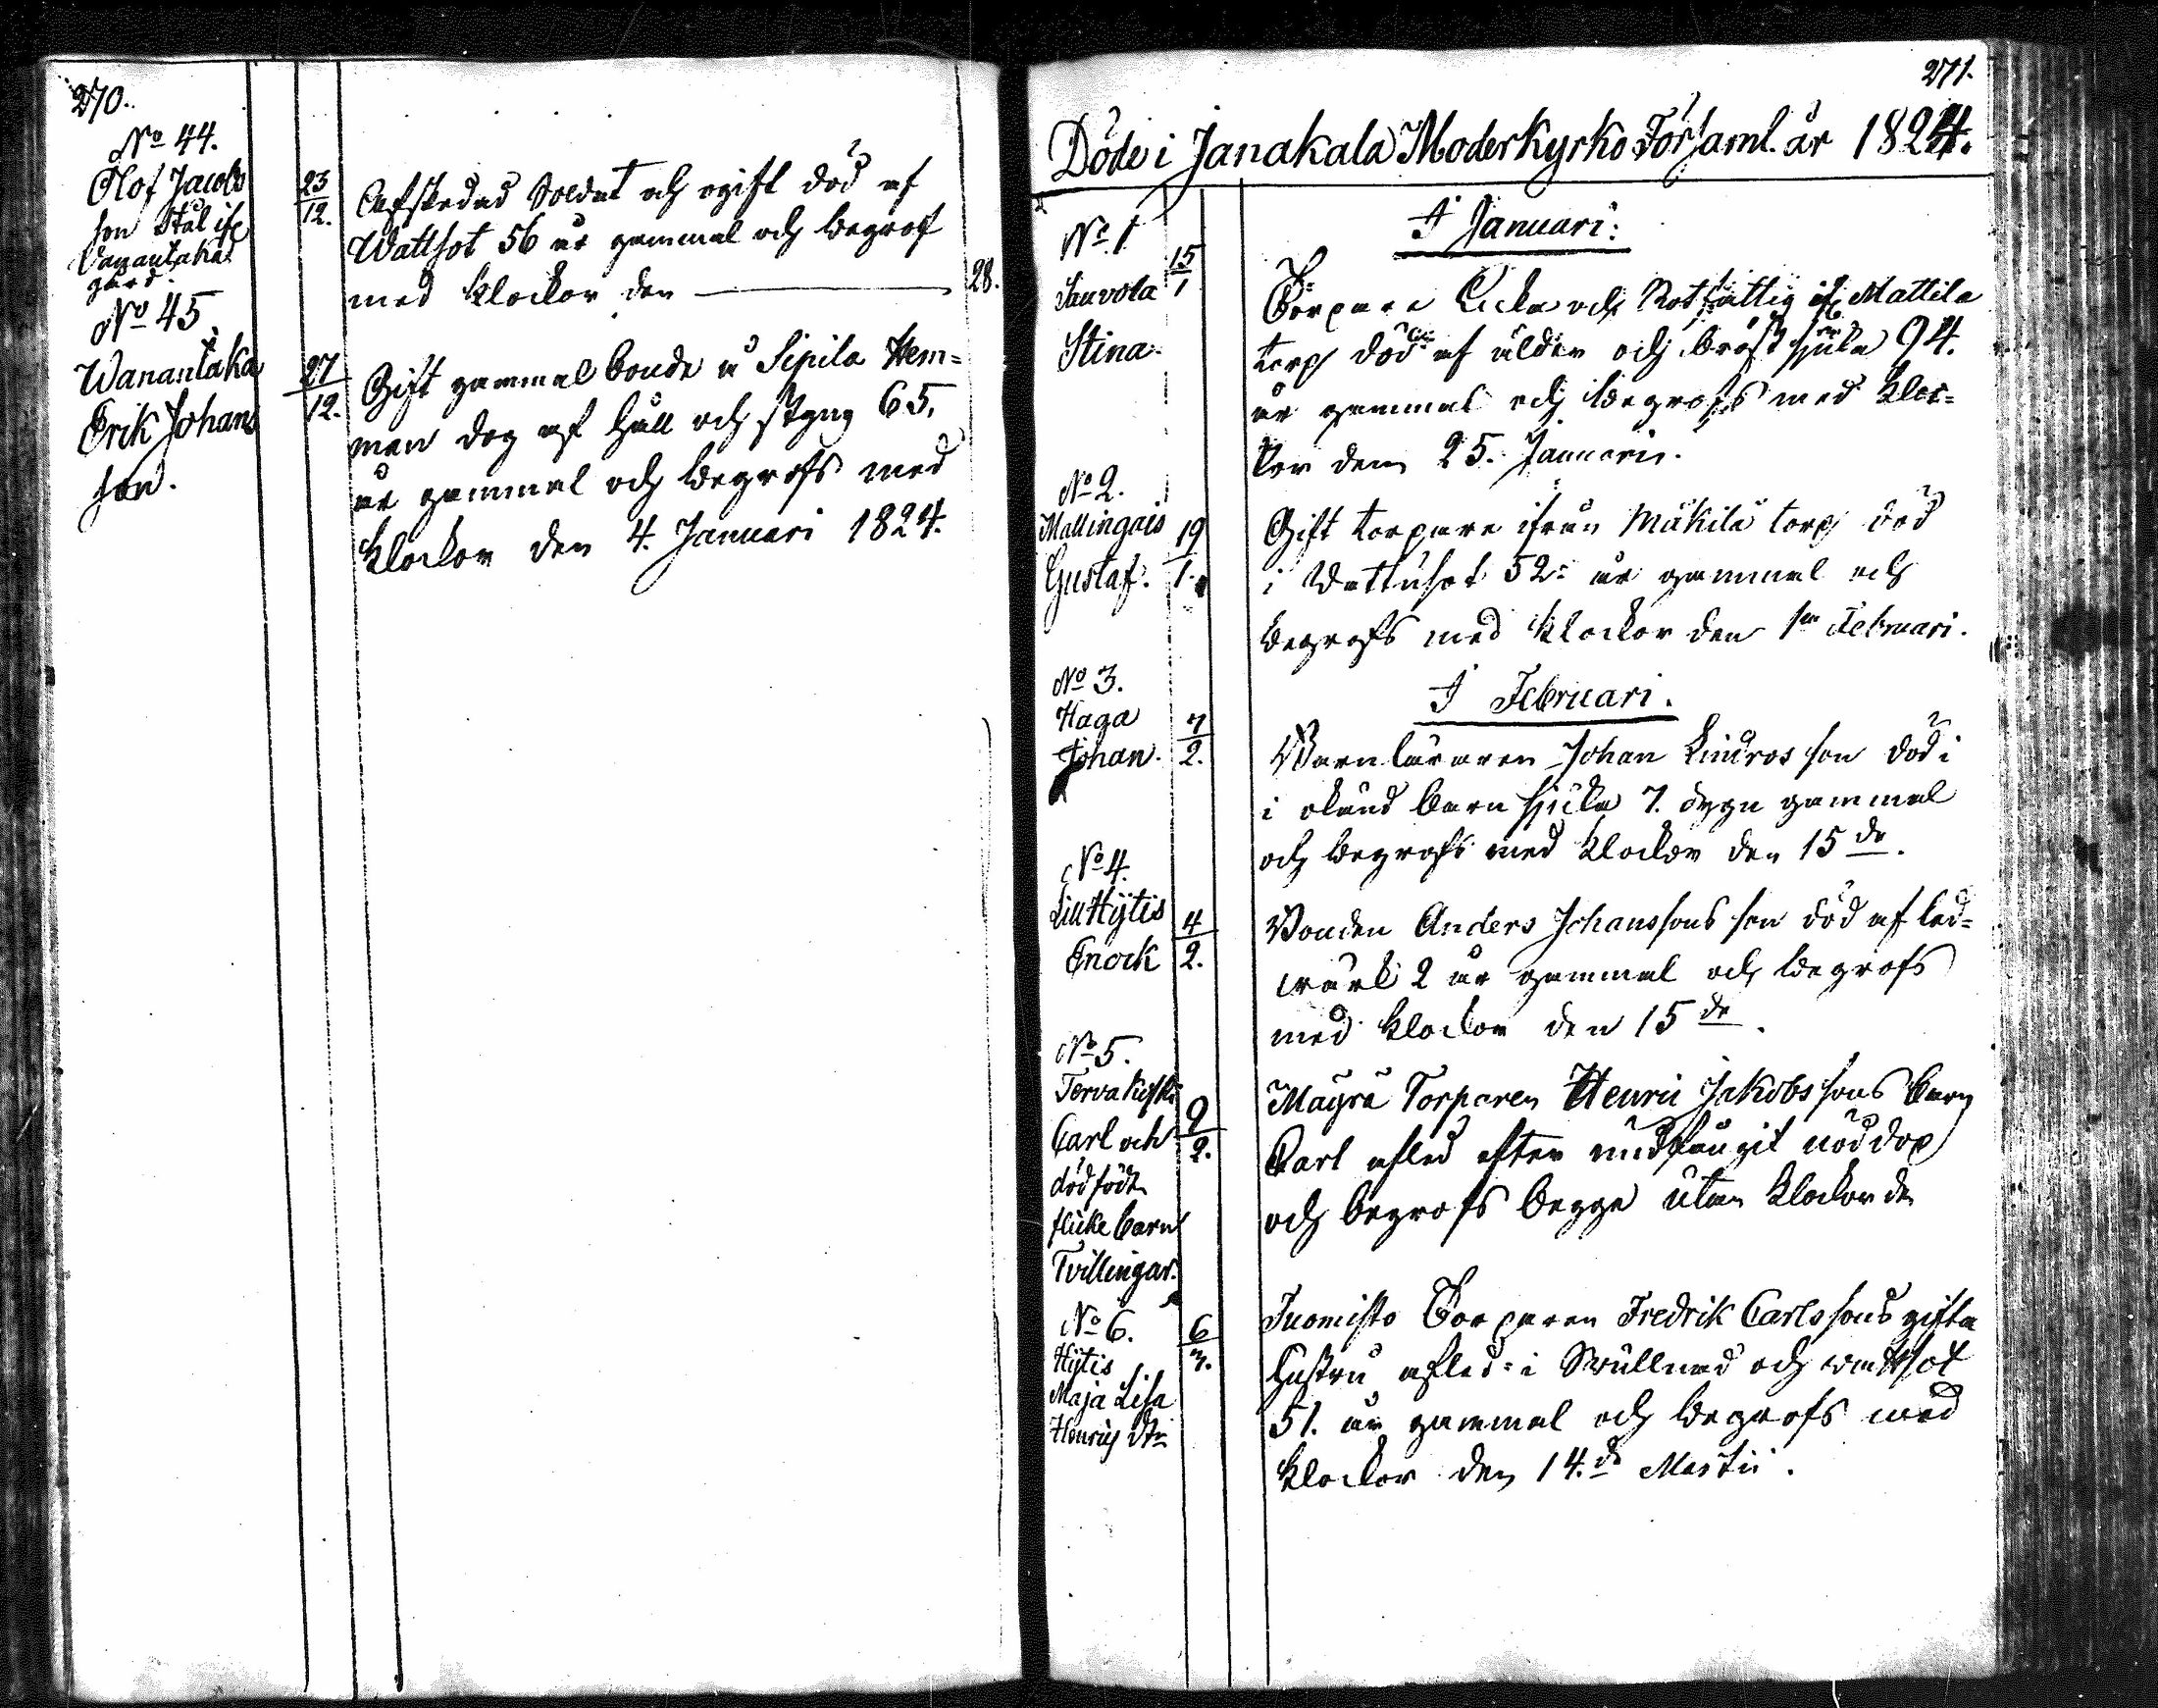 270.
No 44.
Olof Jacobs
son Stål ifr
Vanantaka
gård.
23/12.
Afskedad Soldat och ogift död af
Wattsot 56 år gammal och begrof
med klockor den 28.
No 45
Wanantaka
Erik Johans
son.
27/12.
Gift gammal bonde å Sipila Hem=
man dog af håll och styng 65.
år gammal och begrofs med
klockor den 4. Januari 1824.
271.
Döde i Janakala Moderkyrko Församl. år 1824.
I Januari.
No 1
Sauvola
Stina.
15/1
Torpare Enka och Rotfattig ifr Mattila
torp död af ålder och bröst sjuka 94.
år gammal och begrofs med kloc=
kor den 25. Januarii.
No 2.
Mallingais
Gustaf.
19/1.
Gift torpare ifrån Mäkilä torp död
i Wattusot 52 år gammal och
begrofs med klockor den 1sta Februari.
I Februari.
No 3.
Haga
Johan.
7/2.
Barnläraren Johan Lindros son död i
i okänd barnsjuka 7. dygn gammal
och begrofs med klockor den 15de.
No 4.
Lill Hÿtis
Enock
4/2.
Bonden Anders Johanssons son död af led=
wärk 2 år gammal och begrofs
med klockor den 15de.
No 5.
Tervakoski
Carl och
dödfödt
flicke barn
Tvillingar.
9/2.
Mäyrä Torparen Henric Jakobssons barn
Carl afled efter undfångit nöddop
och begrofs begge utan klockor den
No 6.
Hÿtis
Maja Lisa
Henrics dtr
6/3.
Tuomisto Torparen Fredrik Carlssons gifta
hustru afled i Swullnad och wattsot
51. år gammal och begrofs med
klockor den 14.de Martii.